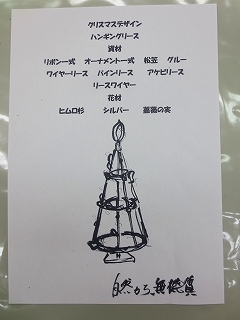 クリスマスデザイン
ハンギングリース
資材
リボン一式 オーナメント一式 松笠 グルー
ワイヤーリース パインリース アケビリース
リースワイヤー
花材
ヒムロ杉 シルバー 薔薇の実
自然から